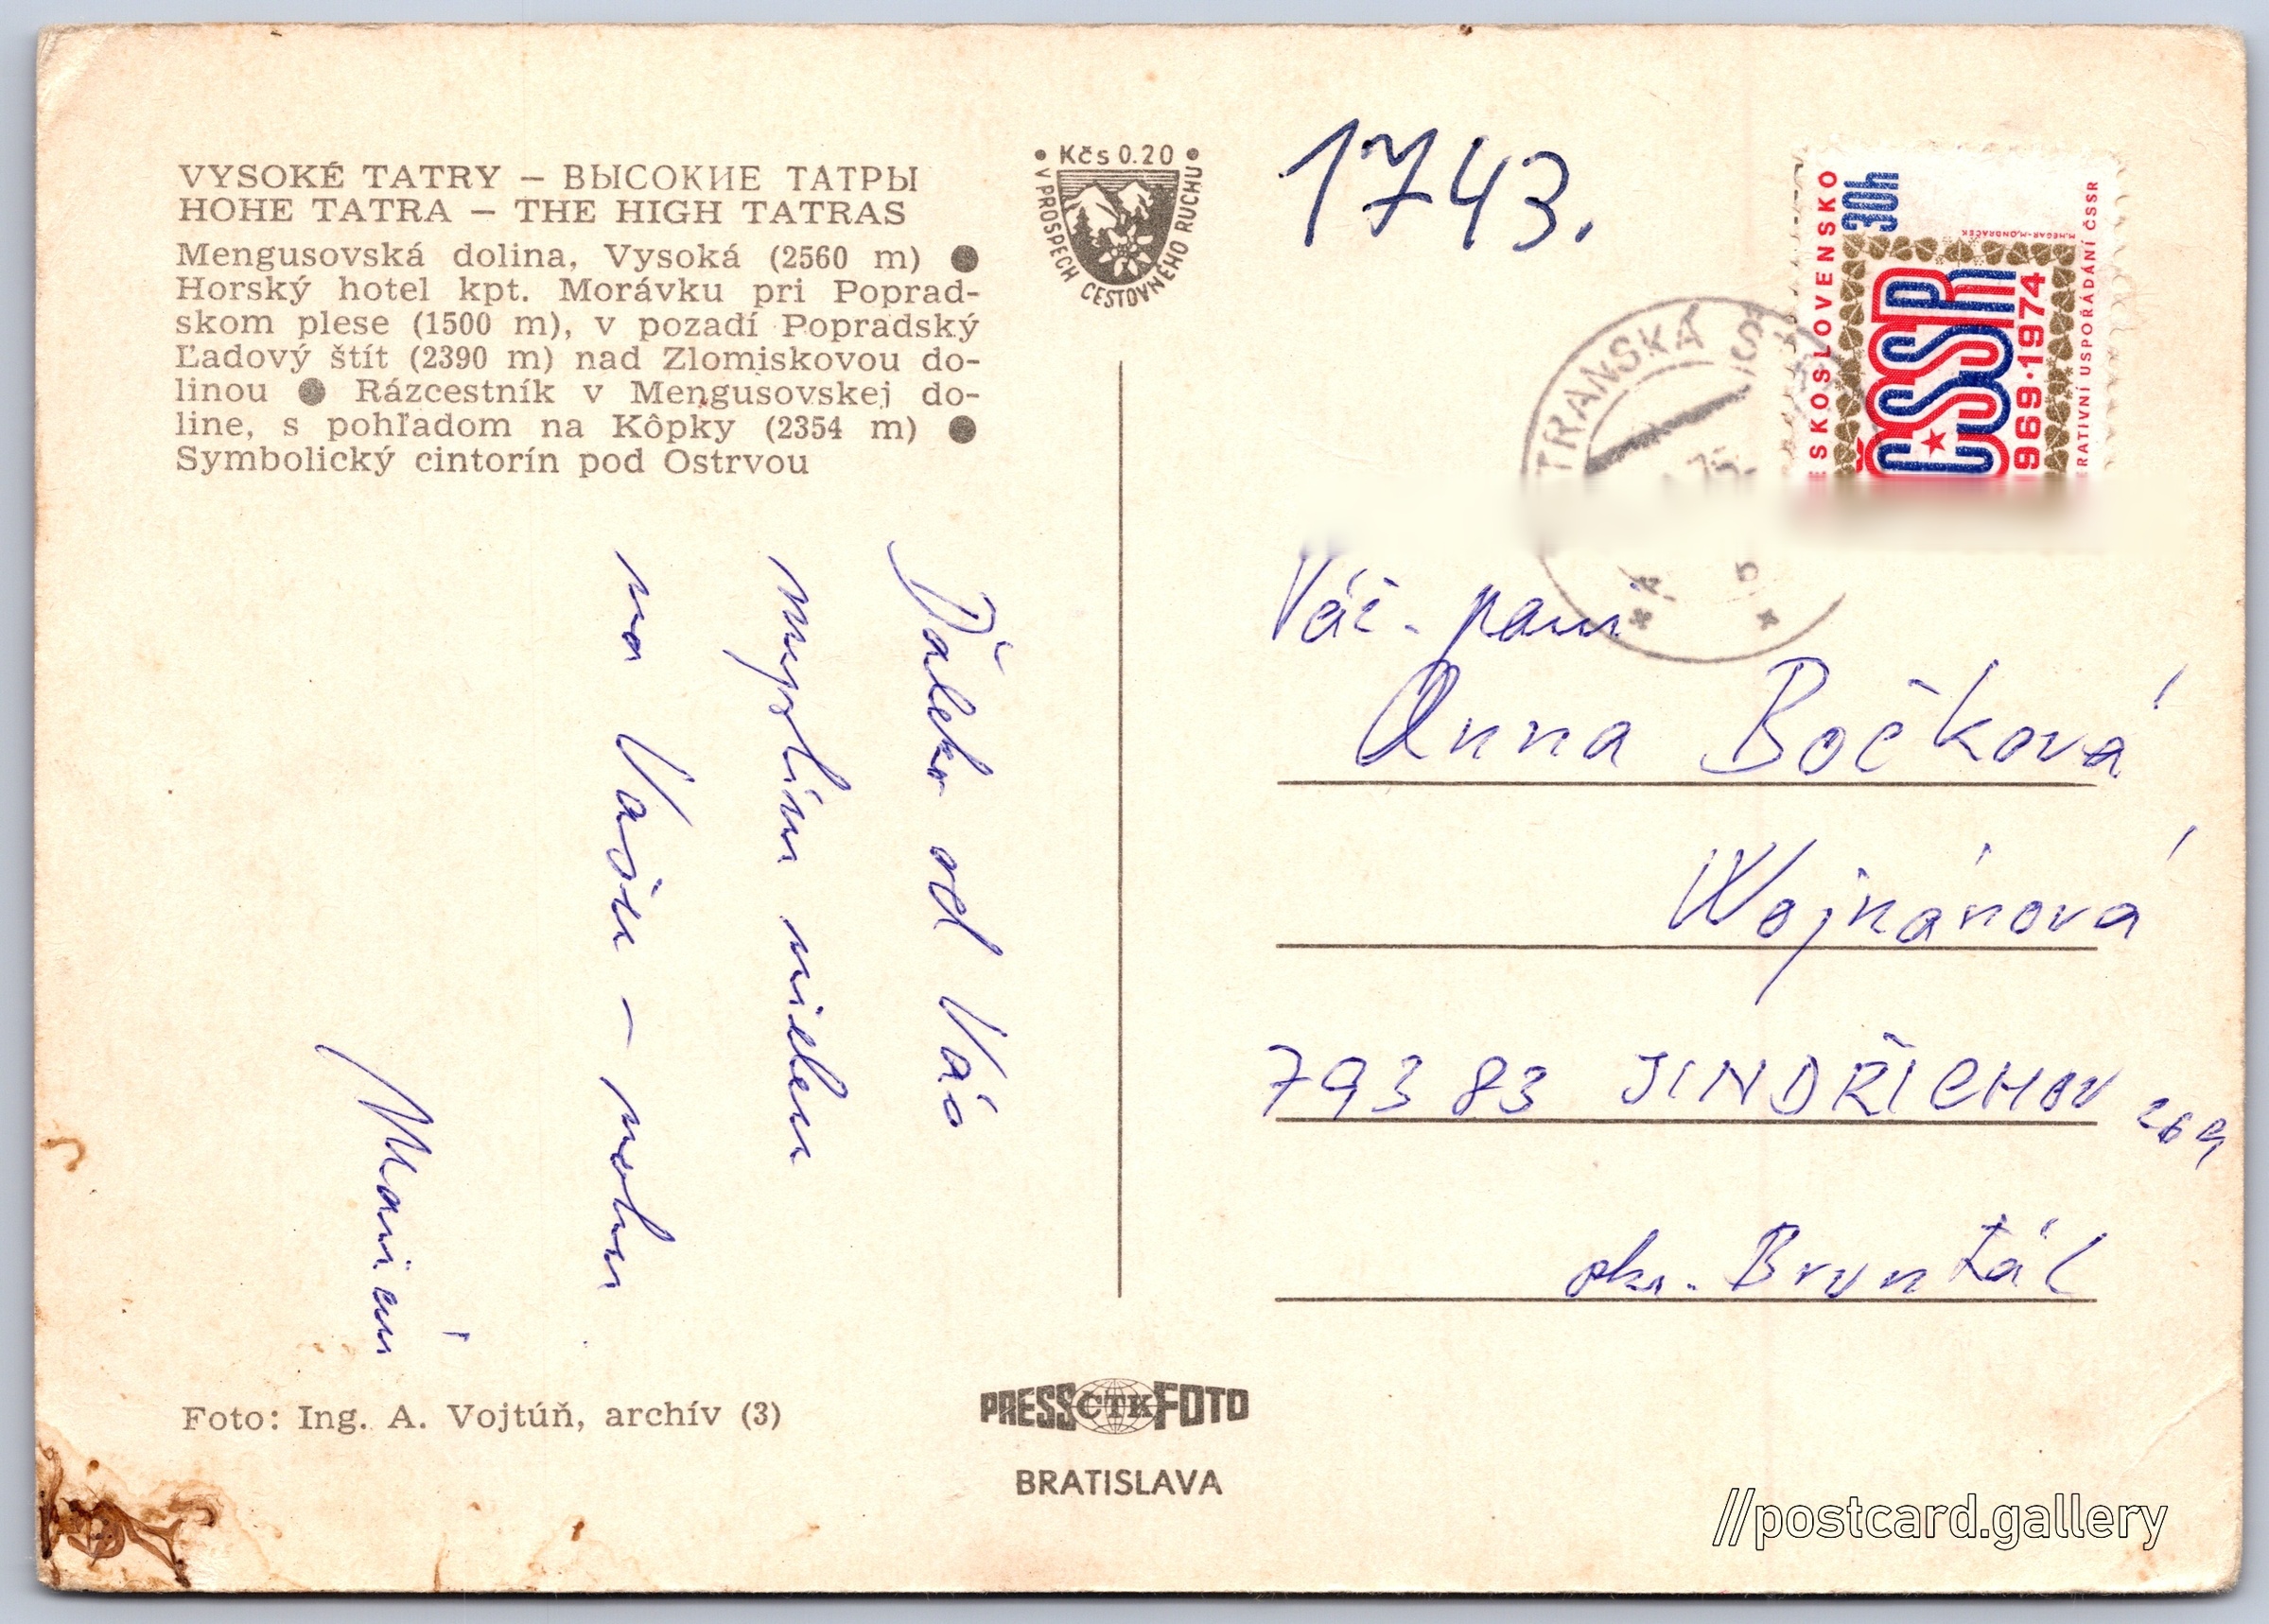 VYSOKÉ TATRY – ВЫСОКИЕ ТАТРЫ
HOHE TATRA – THE HIGH TATRAS
Mengusovská dolina, Vysoká (2560 m) ●
Horský hotel kpt. Morávku pri Poprad-
skom plese (1500 m), v pozadí Popradský
Ľadový štít (2390 m) nad Zlomiskovou do-
linou ● Rázcestník v Mengusovskej do-
line, s pohľadom na Kôpky (2354 m) ●
Symbolický cintorín pod Ostrvou
• Kčs 0.20 •
V PROSPECH CESTOVNÉHO RUCHU
1743.
ESKOSLOVENSKO
30h
ČSSR
969·1974
RATIVNÍ USPOŘÁDÁNÍ ČSSR
M.HEGAR-M.ONDRÁČEK
TRANSKÁ
75
Ďaleko od Vás
myslím nielen
na Vašu –
Váž. pani
Anna Bočková
Wojnárová
793 83 JINDŘICHOV 269
okr. Bruntál
Foto: Ing. A. Vojtúň, archív (3)
PRESS ČTK FOTO
BRATISLAVA
//postcard.gallery